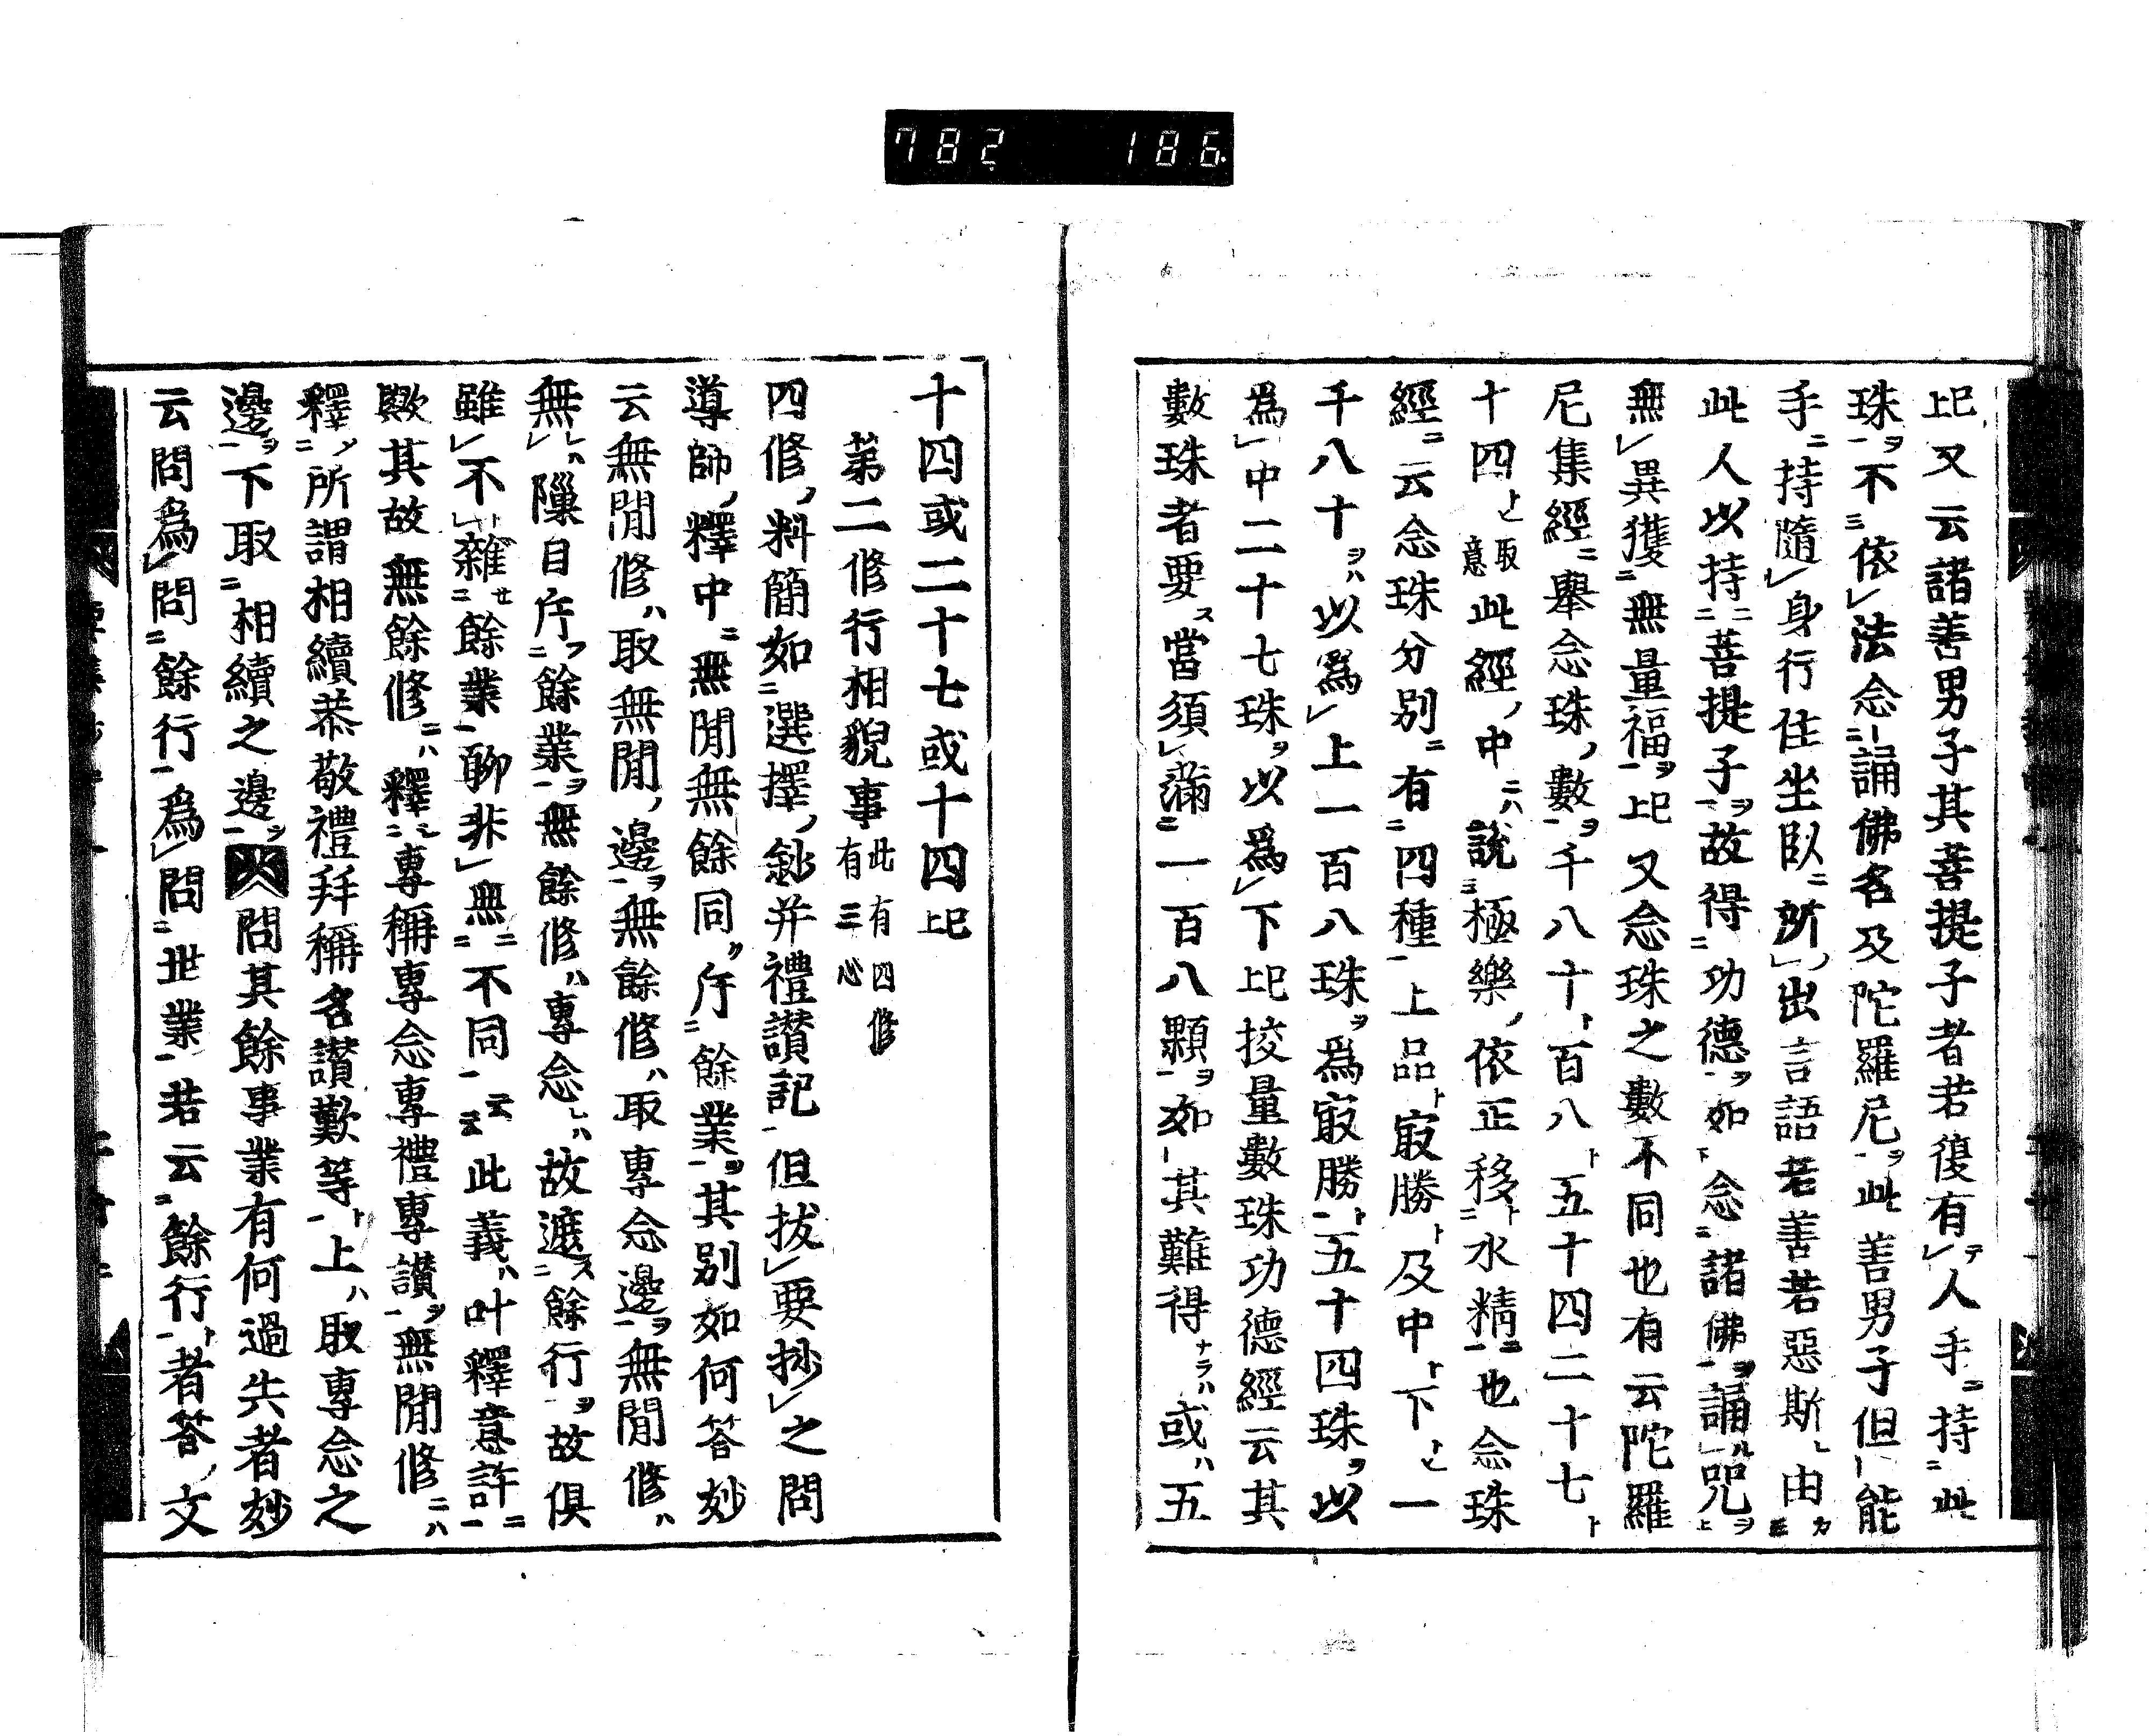 782 186
上已又云諸善男子其菩提子者若復有人手持此
珠不依法念誦佛名及陀羅尼此善男子但能
手持隨身行住坐臥所出言語若善若惡斯由
此人以持菩提子故得功德如念諸佛誦咒
無異獲無量福上已又念珠之數不同也有云陀羅
尼集經舉念珠數千八十百八五十四二十七
十四取意此經中說極樂依正移水精也念珠
經云念珠分別有四種上品最勝及中下一
千八十以為上一百八珠為最勝五十四珠以
為中二十七珠以為下上已挍量數珠功德經云其
數珠者要當須滿一百八顆如其難得或五
十四或二十七或十四上已
第二修行相貌事此有四修有三心
四修料簡如選擇鈔并禮讚記但拔要抄之問
導師釋中無間無餘同斥餘業其別如何答妙
云無間修取無間邊無餘修取專念邊無間修
無隟目斥餘業無餘修專念故遮餘行故俱
雖不雜餘業聊非無不同云云此義叶釋意許
歟其故無餘修釋專稱專念專禮專讚無間修
釋所謂相續恭敬禮拜稱名讚歎等上取專念之
邊下取相續之邊問其餘事業有何過失者妙
云問為問餘行為問世業若云餘行者答文